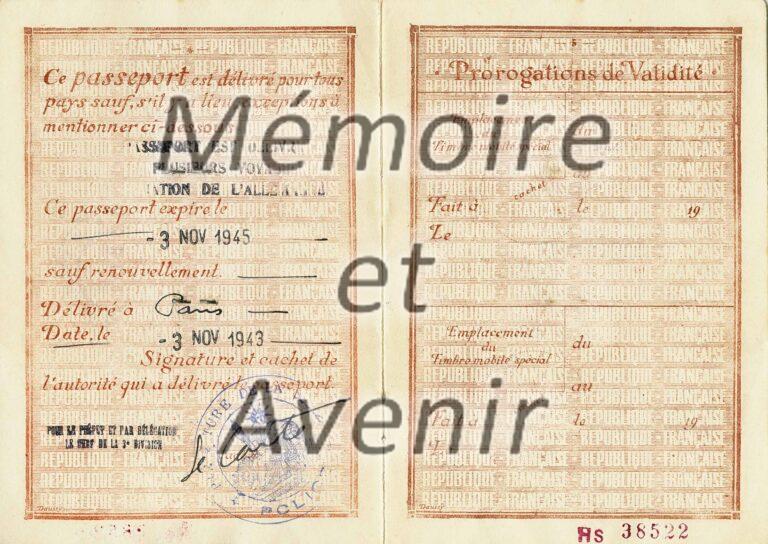 4
Ce passeport est délivré pour tous
pays sauf, s'il y a lieu, exceptions à
mentionner ci-dessous
PASSEPORT EST DÉLIVRÉ
PLUSIEURS VOYAGES
ATION DE L'ALLEMAGNE
Ce passeport expire le
- 3 NOV 1945
sauf renouvellement.
Délivré à Paris
Date, le - 3 NOV 1943
Signature et cachet de
l'autorité qui a délivré le passeport.
POUR LE PRÉFET ET PAR DÉLÉGATION
LE CHEF DE LA 3e DIVISION
POLICE
Daussy
5
Prorogations de Validité
Emplacement
du
Timbre mobile spécial
au
cachet
Fait à le 19
Le
Emplacement
du
Timbre mobile spécial
du
au
Fait à le 19
Daussy
HS 38522
Mémoire
et
Avenir
RÉPUBLIQUE FRANÇAISE